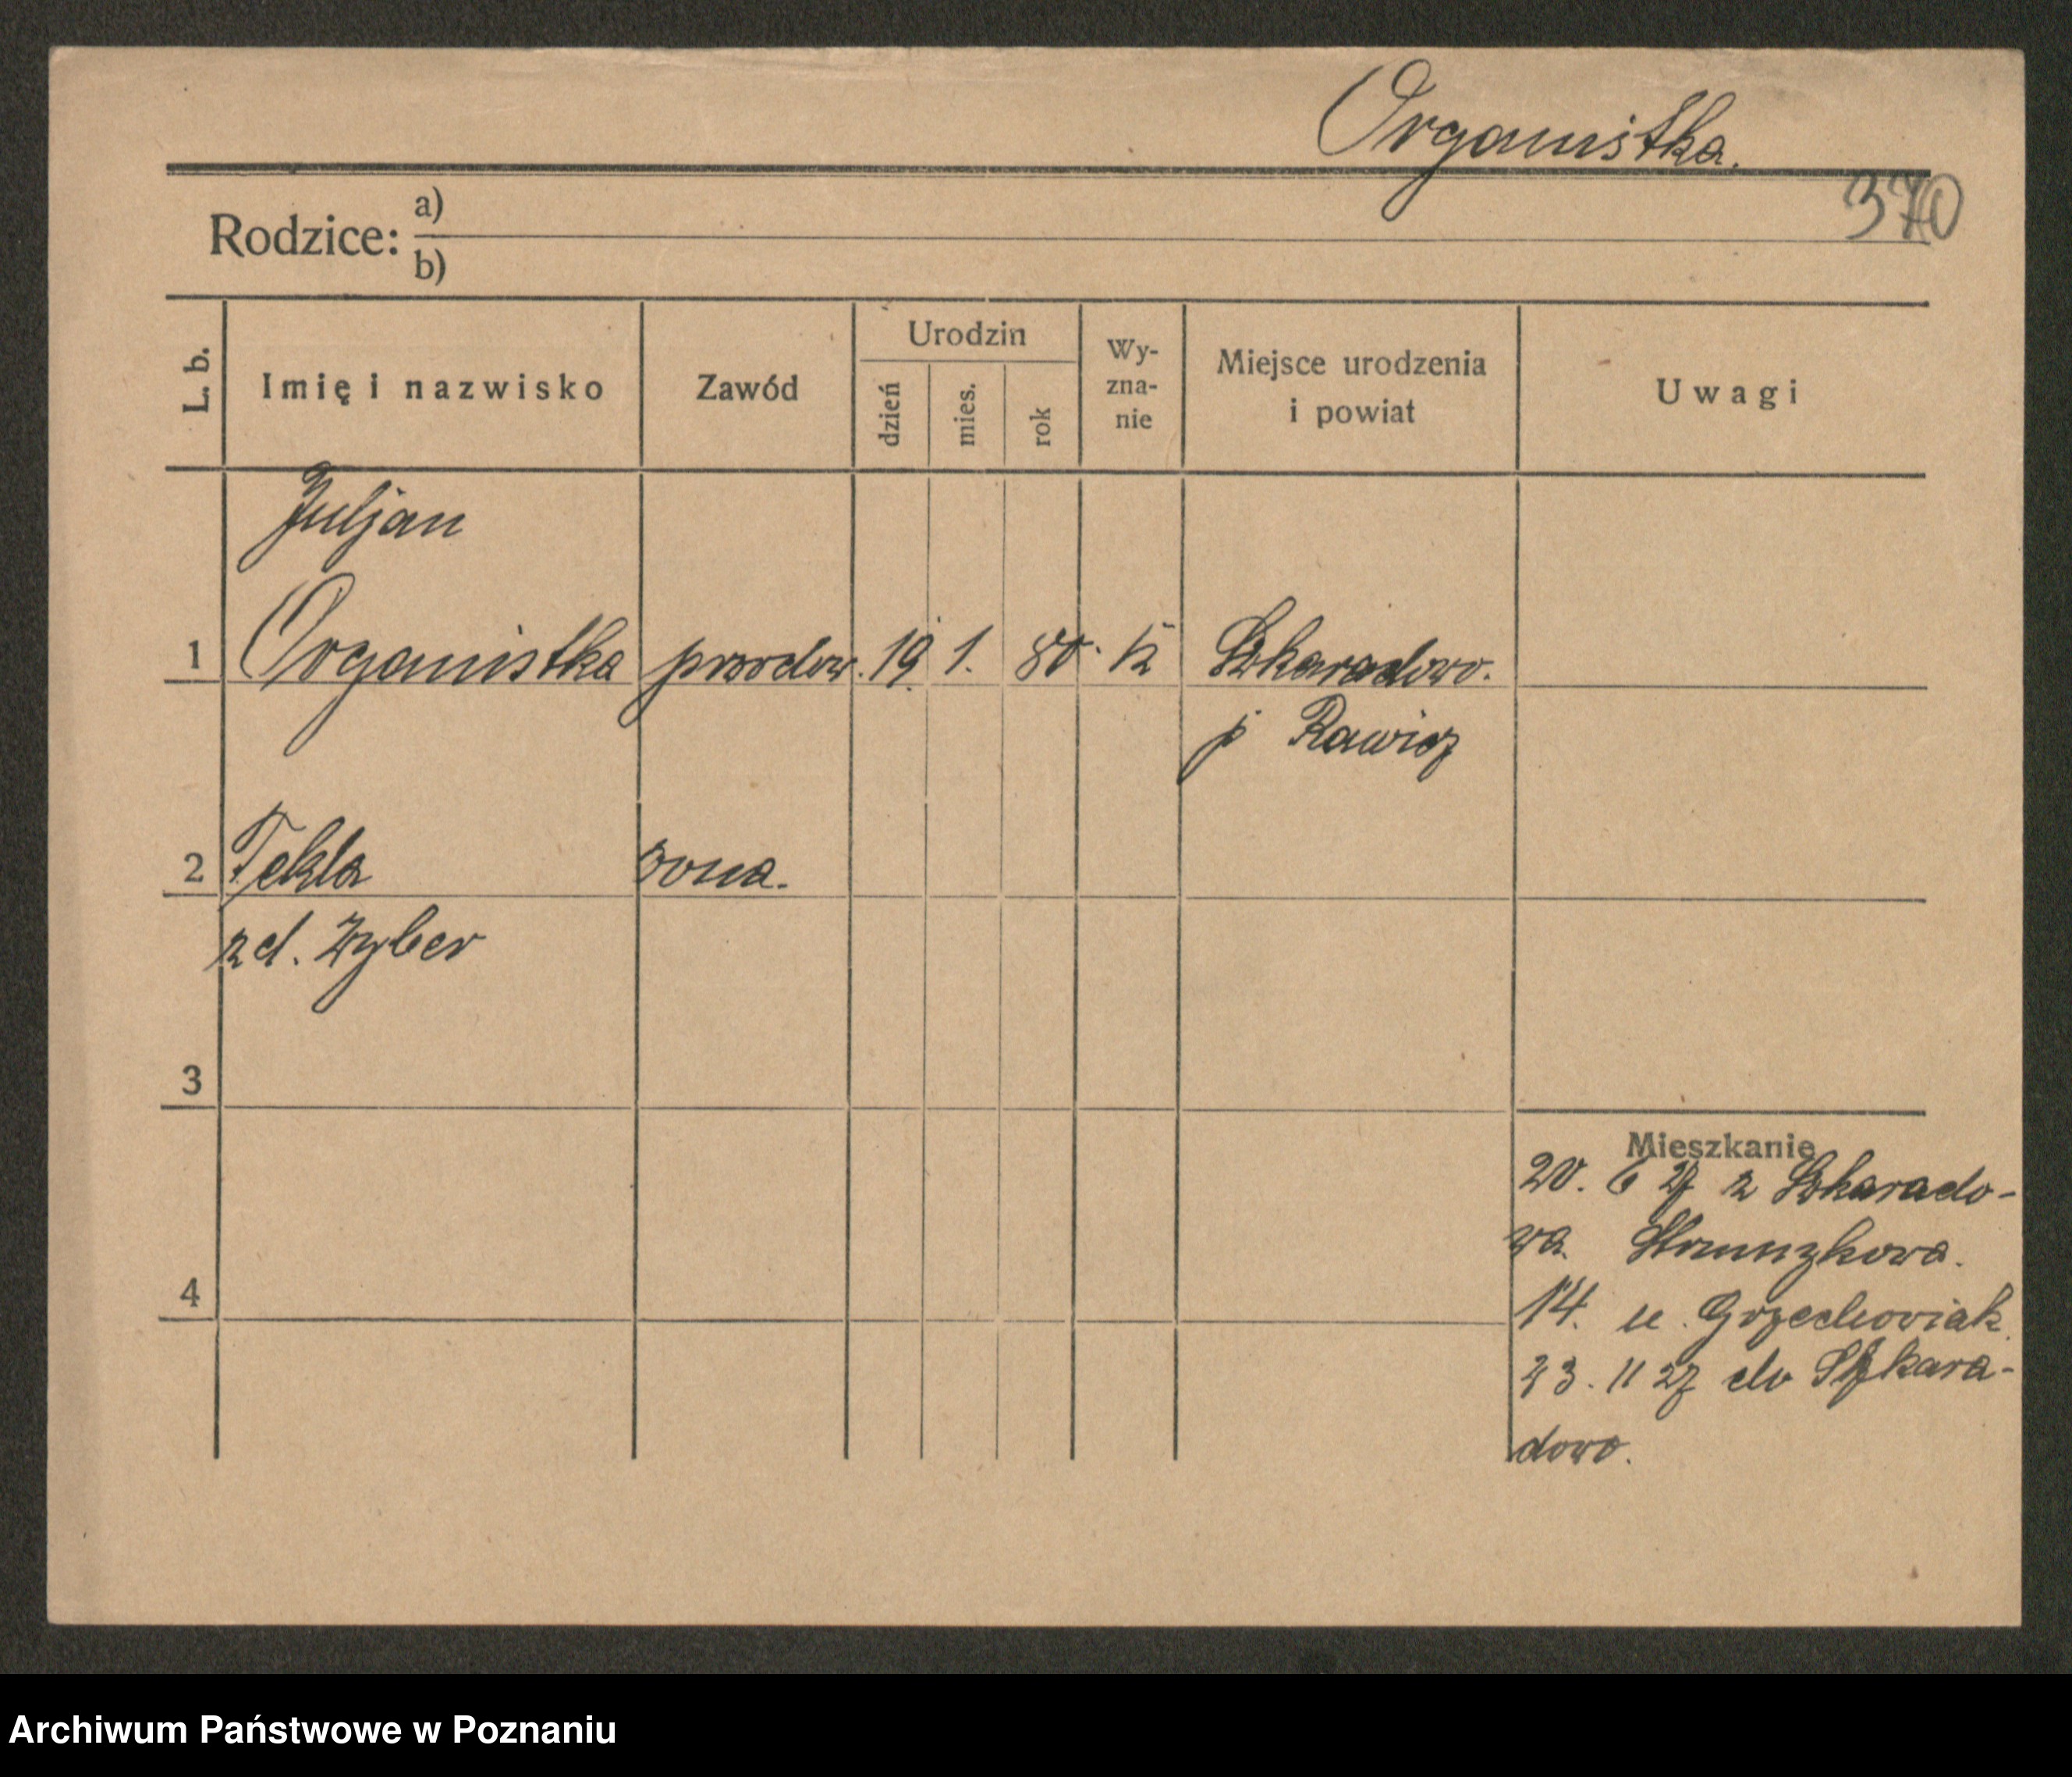 Organistka.
370
Rodzice: a)
b)
L. b.
Imię i nazwisko
Zawód
Urodzin
dzień
mies.
rok
Wy-
zna-
nie
Miejsce urodzenia
i powiat
Uwagi
Juljan
1 Organistka przodow. 19. 1. 80. k Szkaradowo.
p Rawicz
2 Tekla żona.
zd. Zyber
3
4
Mieszkanie
20. 6 27 z Szkarado-
wa
14. u. Grzechowiak
23. 11 27 do Szkara-
dowo.
Archiwum Państwowe w Poznaniu